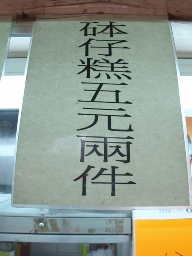 砵仔糕五元兩件